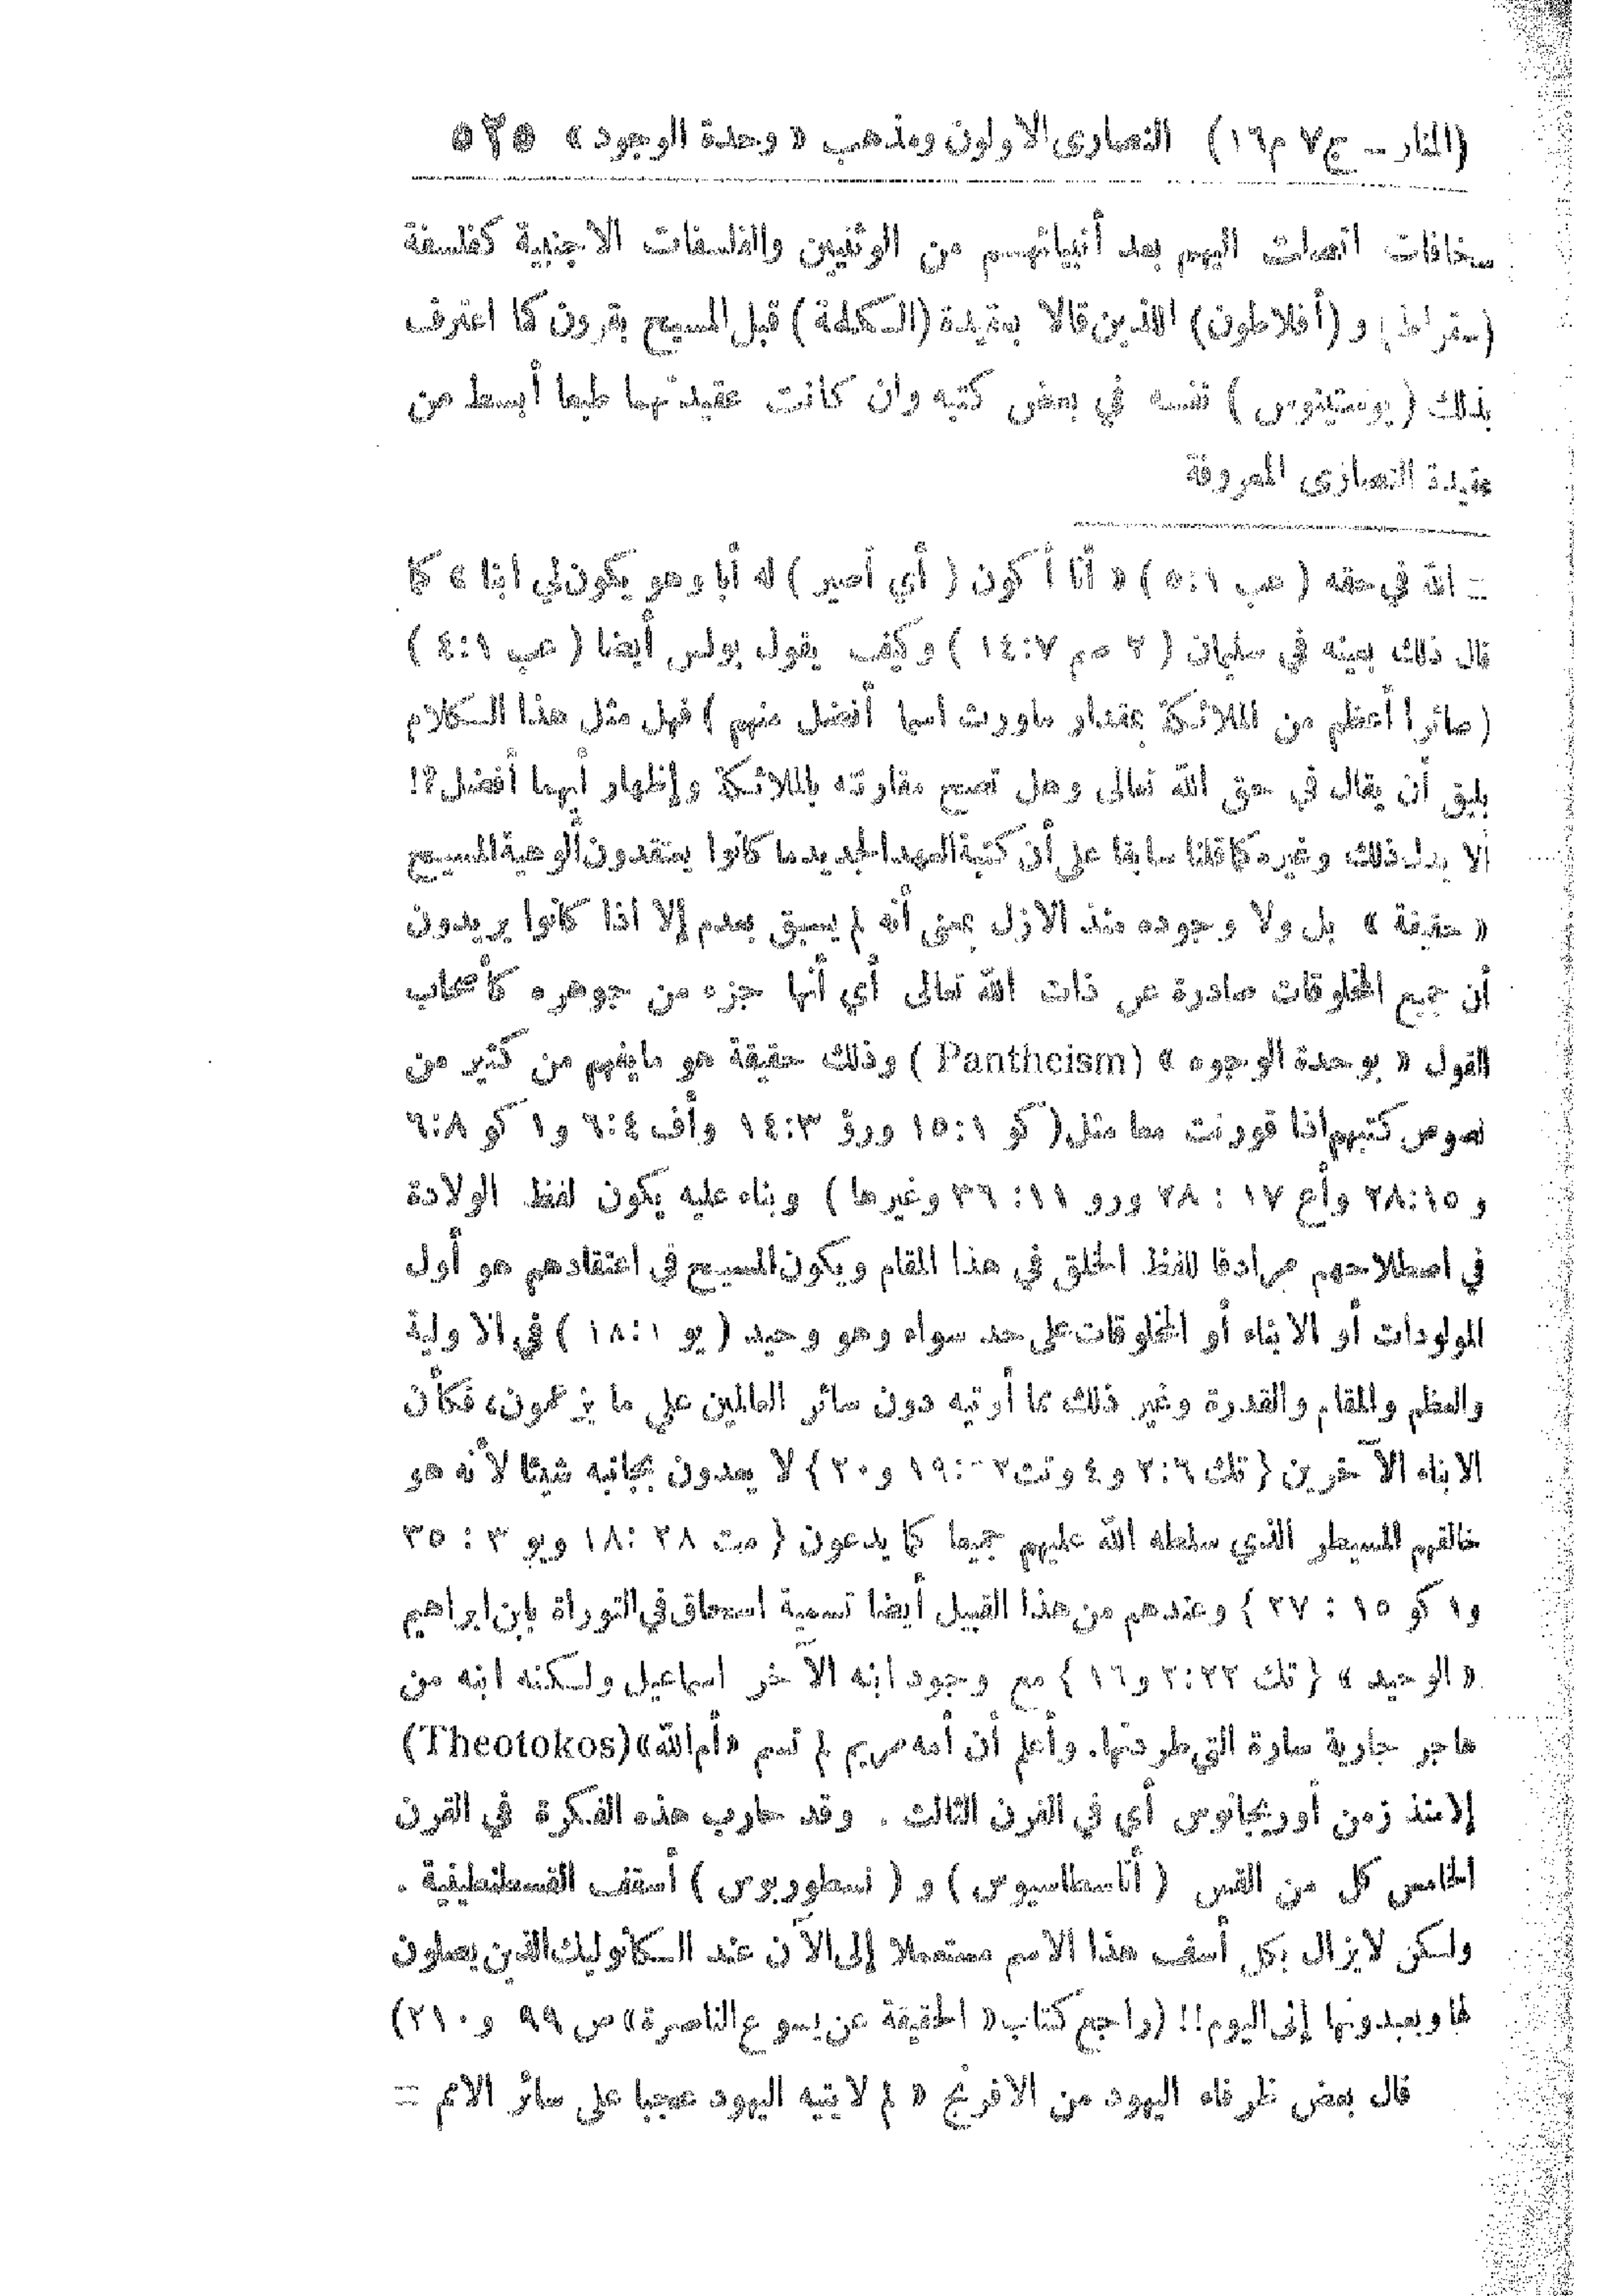 (المنار ــ ج٧ م١٦) النصارى الاولون ومذهب « وحدة الوجود » ٥٢٥
سخافات اتصلت اليهم بعد أنبيائهم من الوثنيين والفلسفات الاجنبية كفلسفة
(سقراط) و (أفلاطون) اللذين قالا بعقيدة (الكلمة) قبل المسيح بقرون كما اعترف
بذلك ( يوستينوس ) نفسه في بعض كتبه وان كانت عقيدتهما طبعا أبسط من
عقيدة النصارى المعروفة
= الله في حقه ( عب ١:٥ ) « أنا أكون ( أي أصير ) له أبا وهو يكون لي ابنا » كما
قال ذلك بعينه في سليمان ( ٢ صم ١٤:٧ ) وكيف يقول بولس أيضا ( عب ٤:١ )
( صائرا أعظم من الملائكة بمقدار ماورث اسما أفضل منهم ) فهل مثل هذا الكلام
يليق أن يقال في حق الله تعالى وهل تصح مقارنته بالملائكة وإظهار أيهما أفضل؟!
ألا يدل ذلك وغيره كما قلنا سابقا على أن كتبة العهد الجديد ما كانوا يعتقدون ألوهية المسيح
« حقيقة » بل ولا وجوده منذ الازل بمعنى أنه لم يسبق بعدم إلا اذا كانوا يريدون
أن جميع المخلوقات صادرة عن ذات الله تعالى أي أنها جزء من جوهره كأصحاب
القول « بوحدة الوجود » (Pantheism ) وذلك حقيقة هو مايفهم من كثير من
نصوص كتبهم اذا قورنت معا مثل( كو ١٥:١ ورؤ ١٤:٣ وأف ٦:٤ و١ كو ٦:٨
و ٢٨:١٥ وأع ١٧ : ٢٨ ورو ١١: ٣٦ وغيرها ) وبناء عليه يكون لفظ الولادة
في اصطلاحهم مرادفا للفظ الخلق في هذا المقام ويكون المسيح في اعتقادهم هو أول
المولودات أو الابناء أو المخلوقات على حد سواء وهو وحيد ( يو ١٨:١ ) في الاولية
والعظم والمقام والقدرة وغير ذلك مما أوتيه دون سائر العالمين على ما يزعمون، فكأن
الابناء الآخرين ( تك ٢:٦ و٤ وتث ١٩: و٢٠ ) لا يعدون بجانبه شيئا لأنه هو
خالقهم المسيطر الذي سلطه الله عليهم جميعا كما يدعون ( مت ٢٨ :١٨ ويو ٣ : ٣٥
و١ كو ١٥ : ٢٧ ) وعندهم من هذا القبيل أيضا تسمية اسحاق في التوراة بابن ابراهيم
« الوحيد » ( تك ٢:٢٢ و١٦ ) مع وجود ابنه الآخر اسماعيل ولكنه ابنه من
هاجر جارية سارة التي طردتها. وأعلم أن أمه مريم لم تسم «أم الله»(Theotokos)
إلا منذ زمن أوريجانوس أي في القرن الثالث . وقد حارب هذه الفكرة في القرن
الخامس كل من القس ( أناسطاسيوس ) و ( نسطوريوس ) أسقف القسطنطينية .
ولكن لا يزال بكل أسف هذا الاسم مستعملا إلى الآن عند الكاثوليك الذين يصلون
لها ويعبدونها إلى اليوم!! (راجع كتاب« الحقيقة عن يسوع الناصرة»ص ٩٩ و٢١٠)
قال بعض ظرفاء اليهود من الافرنج « لم لا يتيه اليهود عجبا على سائر الامم =